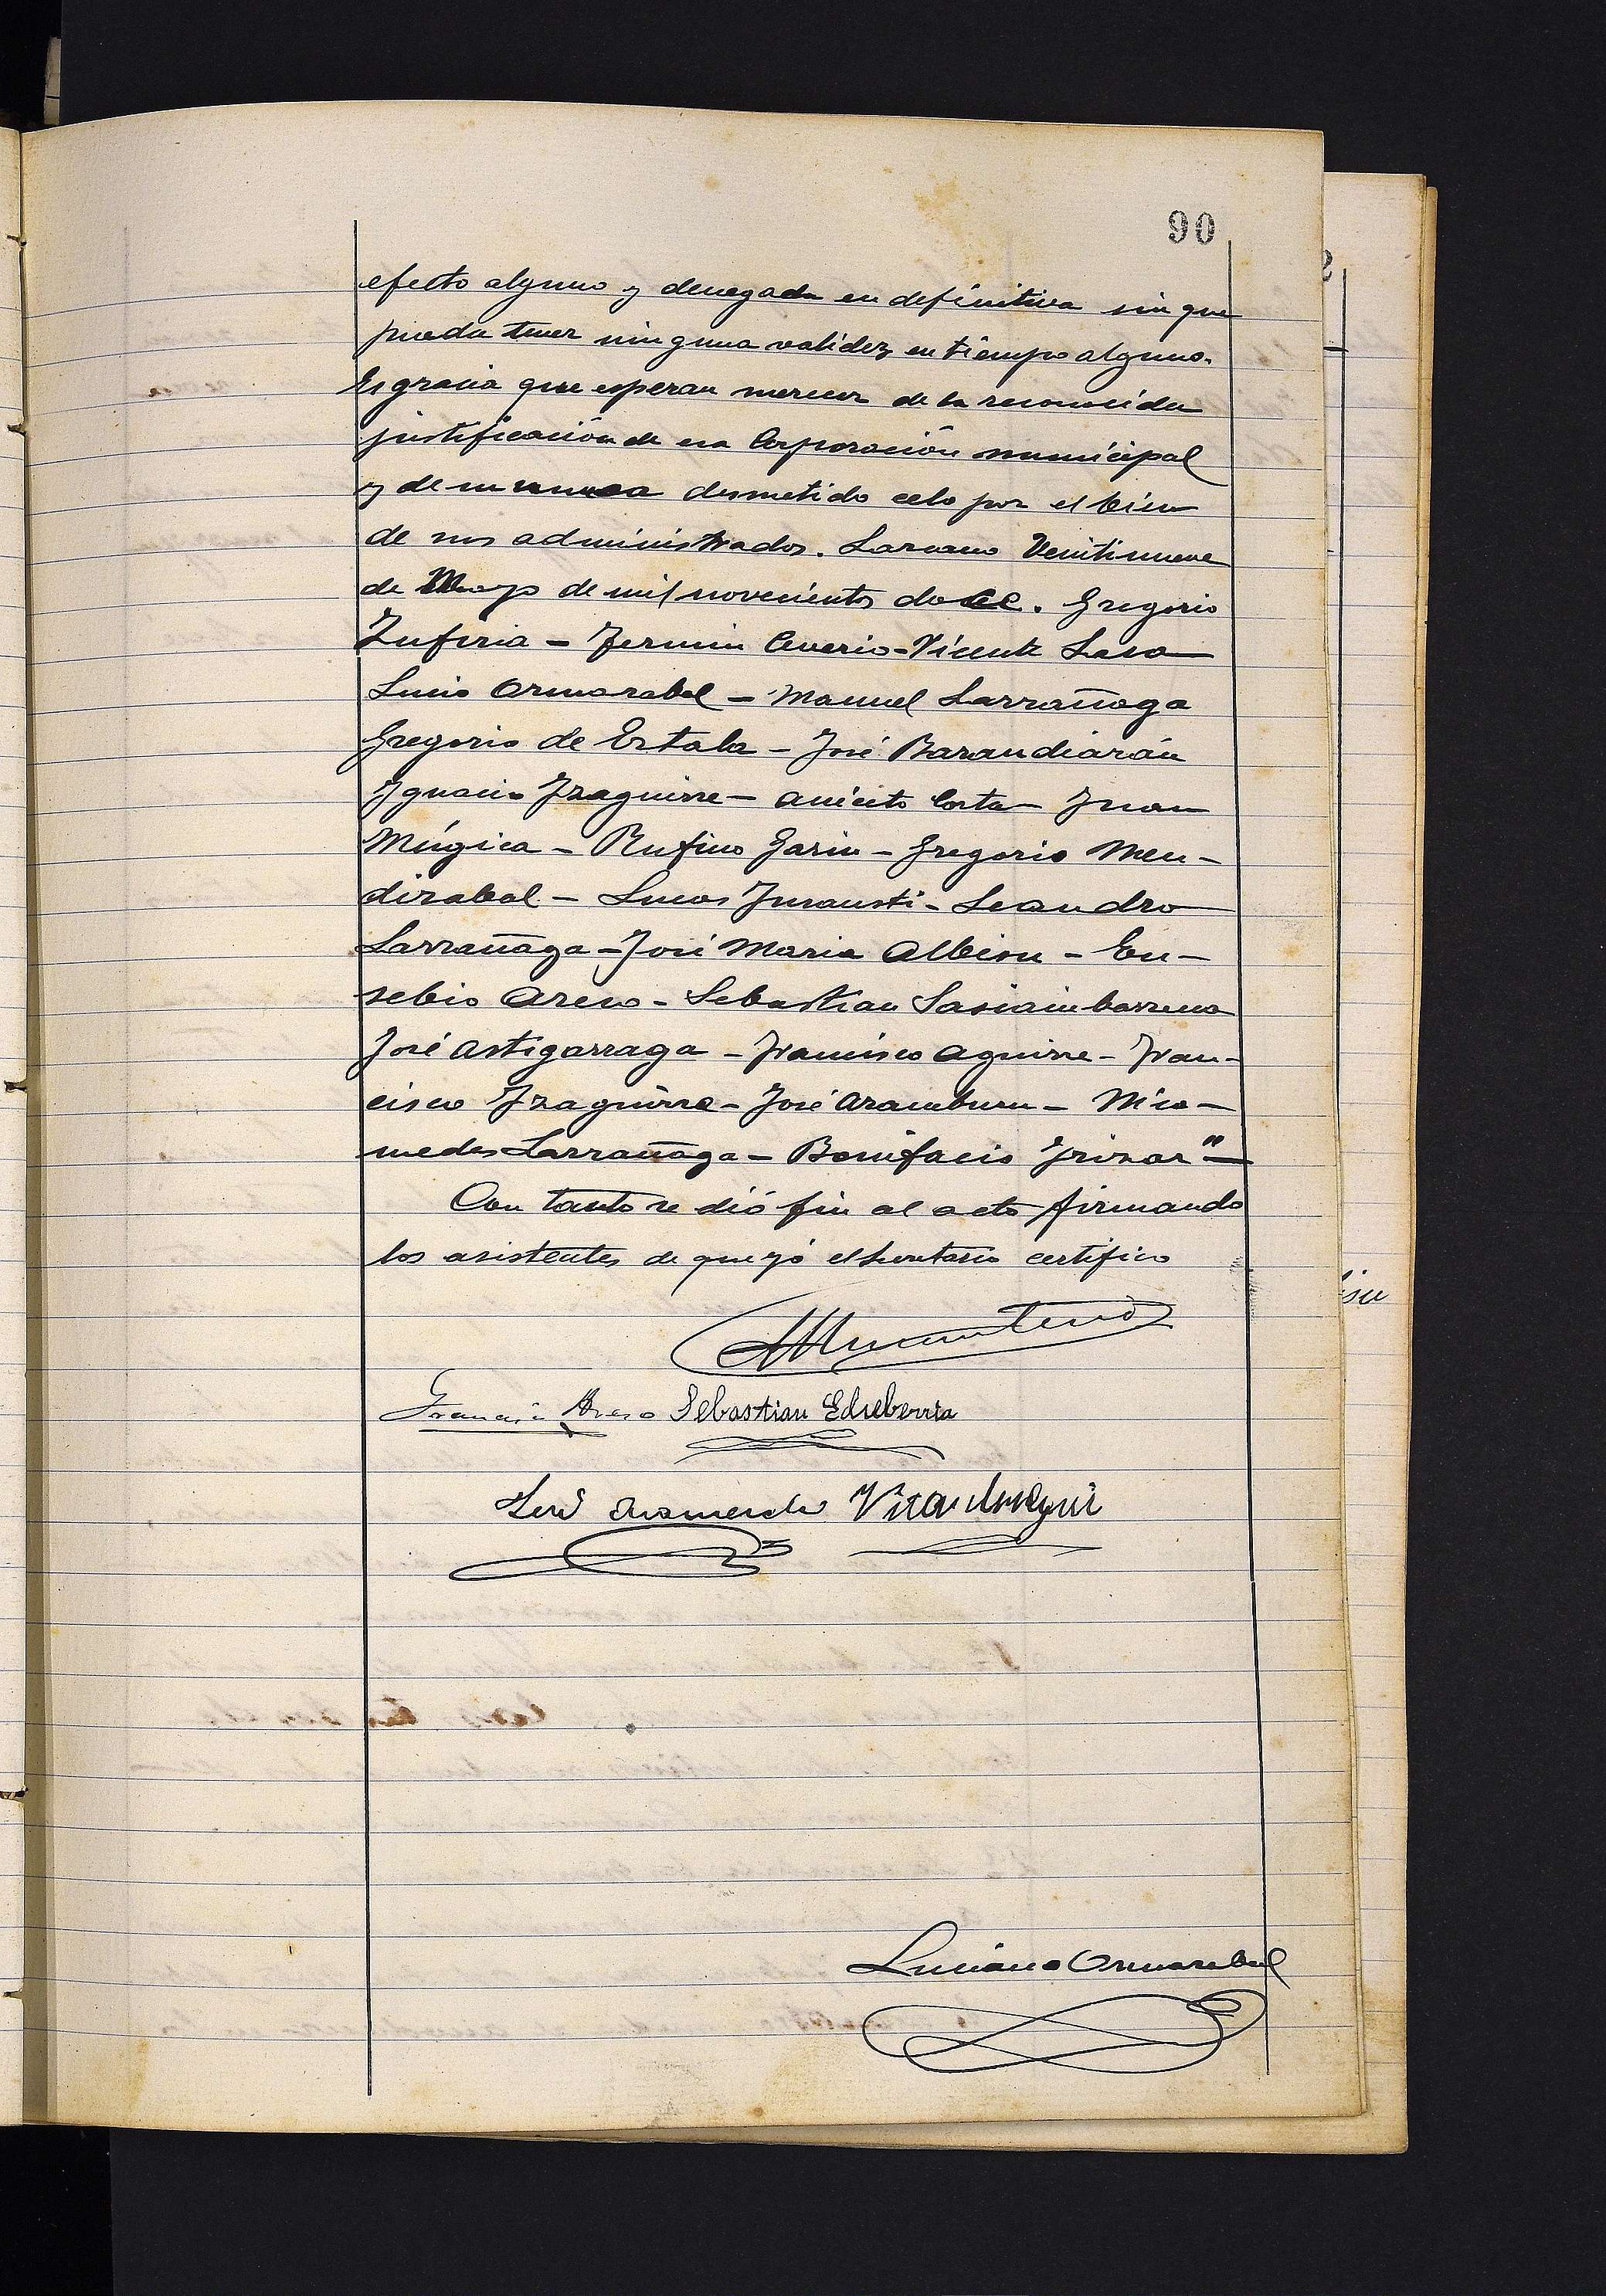 90
efecto alguno y denegada en definitiva sin que
pueda tener ninguna validez en tiempo alguno.
Es gracia que esperan merecer de la reconocida
justificación de esa Corporación municipal
y de su nunca desmetido celo por el bien
de sus administrados. Lazcano Veintinueve
de Mayo de mil novecientos doce. Gregorio
Zufiria - Fermin Ceverio - Vicente Lasa
Lucio Ormazabal - Manuel Larrañaga
Gregorio de Estala - José Barandiarán
Ignacio Izaguirre - Aniceto Corta - Juan
Múgica - Rufino Garin - Gregorio Men-
dizabal - Lucas Inrausti - Leandro
Larrañaga - José Maria Albisu - Eu-
sebio Areso - Sebastian Sasiambarrena
José Astigarraga - Francisco Aguirre - Fran-
cisco Izaguirre - José Aramburu - Nico-
medes Larrañaga - Bonifacio Irizar"
Con tanto se dió fin al acto firmando
los asistentes de que yó el Secretario certifico
Francisco Areso Sebastian Echeberria
José
Luciano Ormazabal